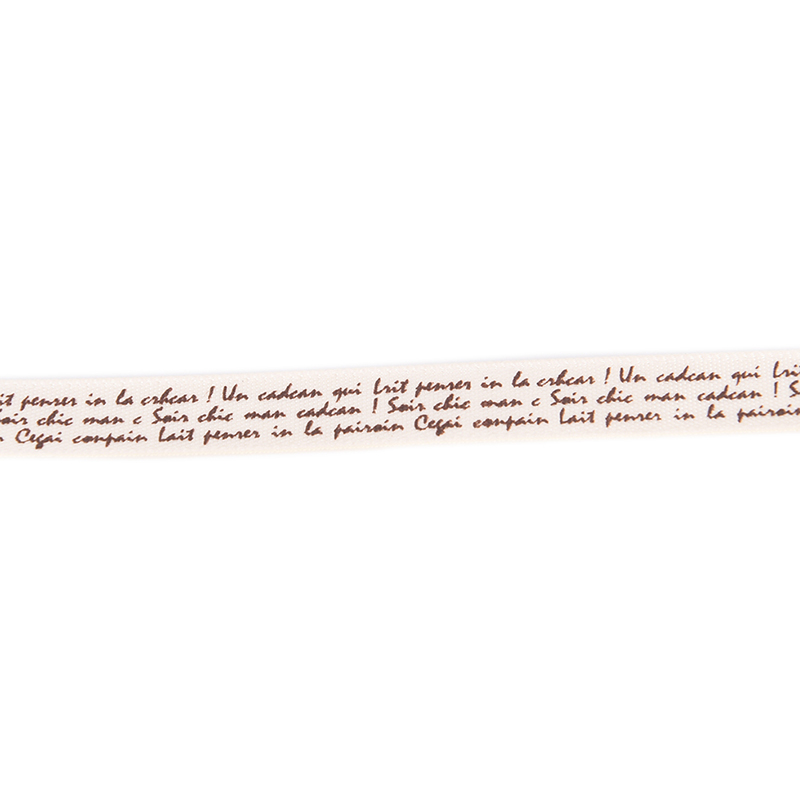 it penser in la crhcar ! Un cadcan qui Lrit penser in la crhcar ! Un cadcan qui Lrit
oir chic man c Soir chic man cadcan ! Soir chic man c Soir chic man cadcan ! S
n Cegai conpain Lait penser in la pairoin Cegai conpain Lait penser in la pairoin